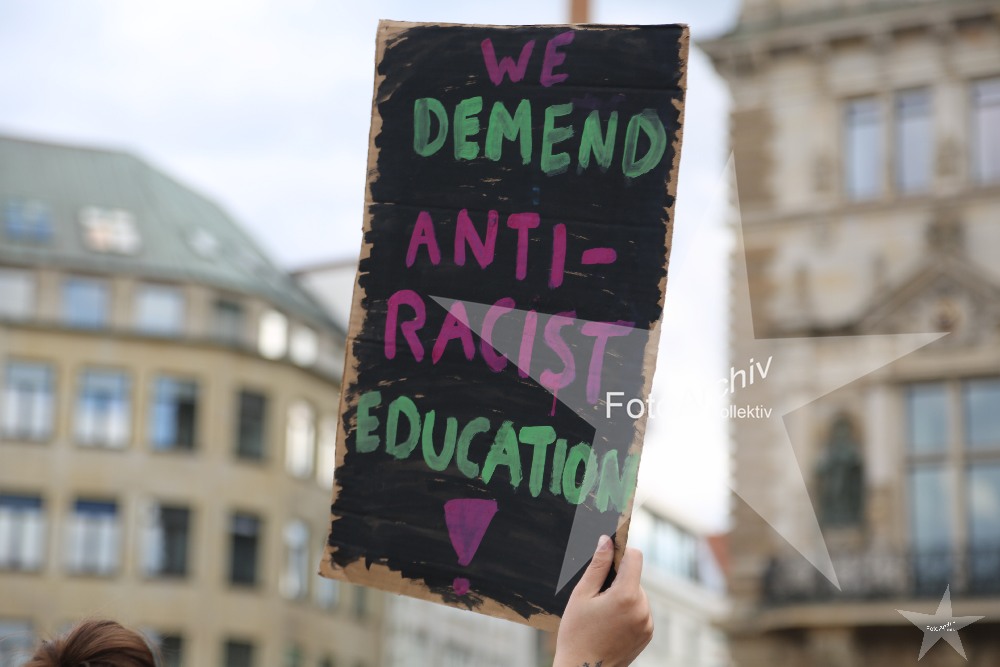 WE
DEMEND
ANTI-
RACIST
EDUCATION
!
Foto Archiv
Kollektiv